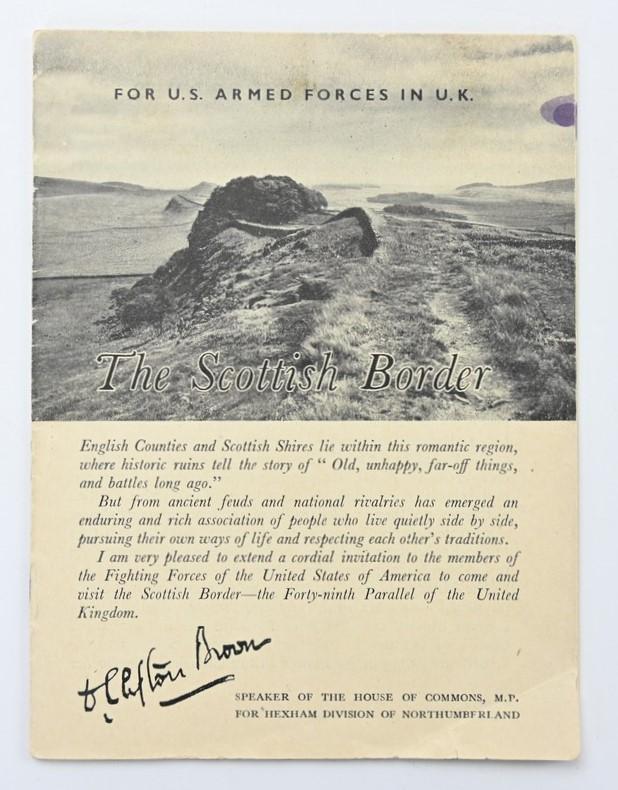 FOR U.S. ARMED FORCES IN U.K.
The Scottish Border
English Counties and Scottish Shires lie within this romantic region,
where historic ruins tell the story of “ Old, unhappy, far-off things,
and battles long ago.”
But from ancient feuds and national rivalries has emerged an
enduring and rich association of people who live quietly side by side,
pursuing their own ways of life and respecting each other's traditions.
I am very pleased to extend a cordial invitation to the members of
the Fighting Forces of the United States of America to come and
visit the Scottish Border—the Forty-ninth Parallel of the United
Kingdom.
D Clifton Brown
SPEAKER OF THE HOUSE OF COMMONS, M.P.
FOR HEXHAM DIVISION OF NORTHUMBERLAND